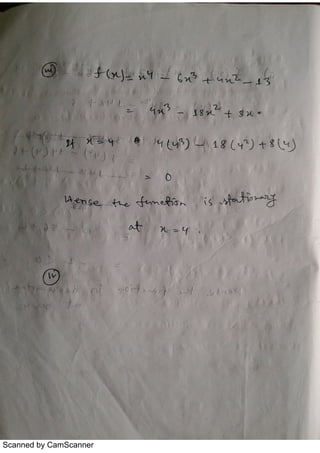 iii) f(x) = x4 - 6x3 + 4x2 - 13
= 4x3 - 18x2 + 8x.
If x = 4 4(43) - 18(42) + 8(4)
= 0
Hence the function is stationary
at x = 4.
iv
Scanned by CamScanner